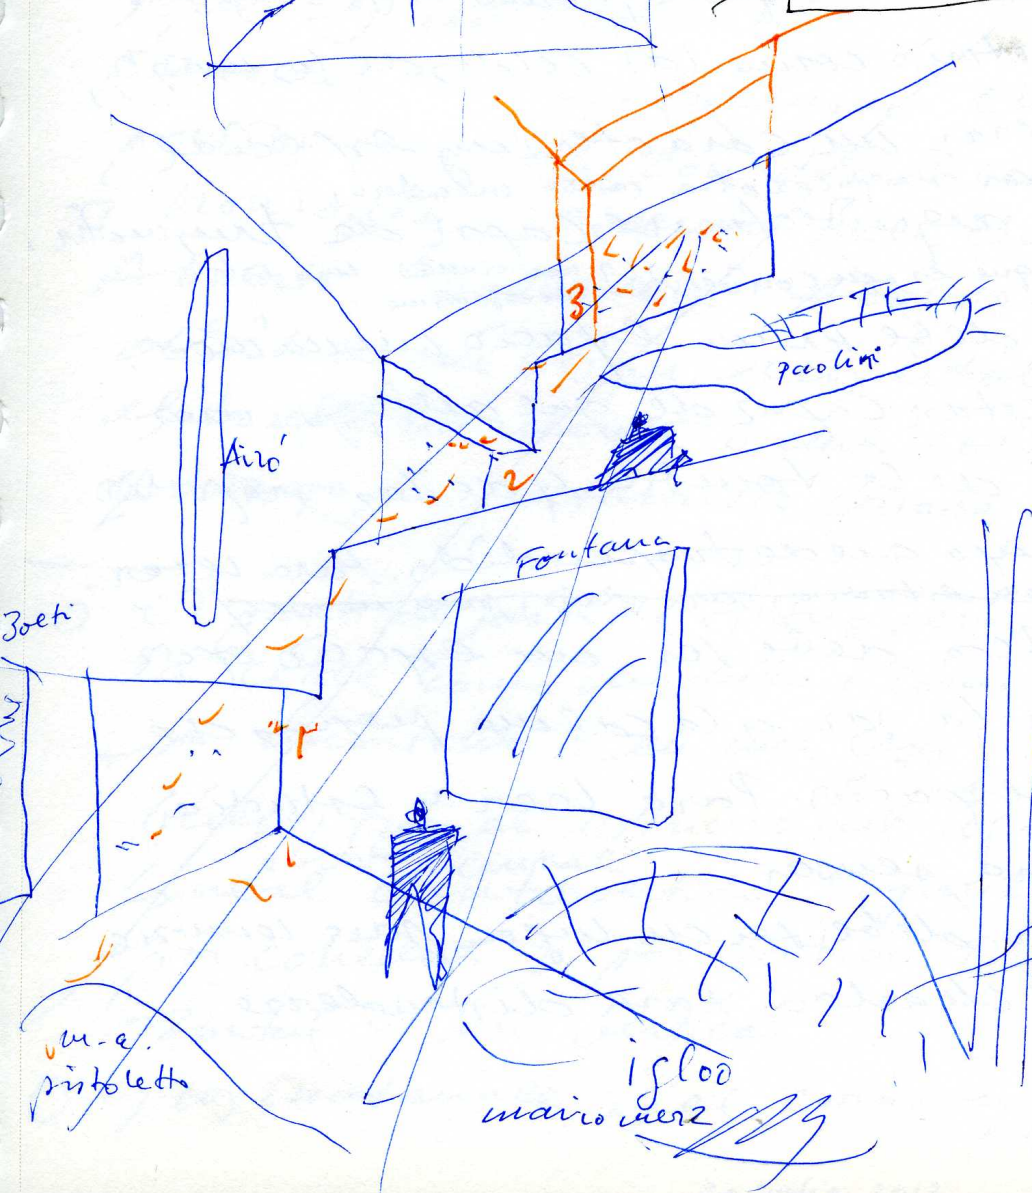 3
paolini
Airó
2
Fontana
Boeti
1
m.a.
pistoletto
igloo
mario merz